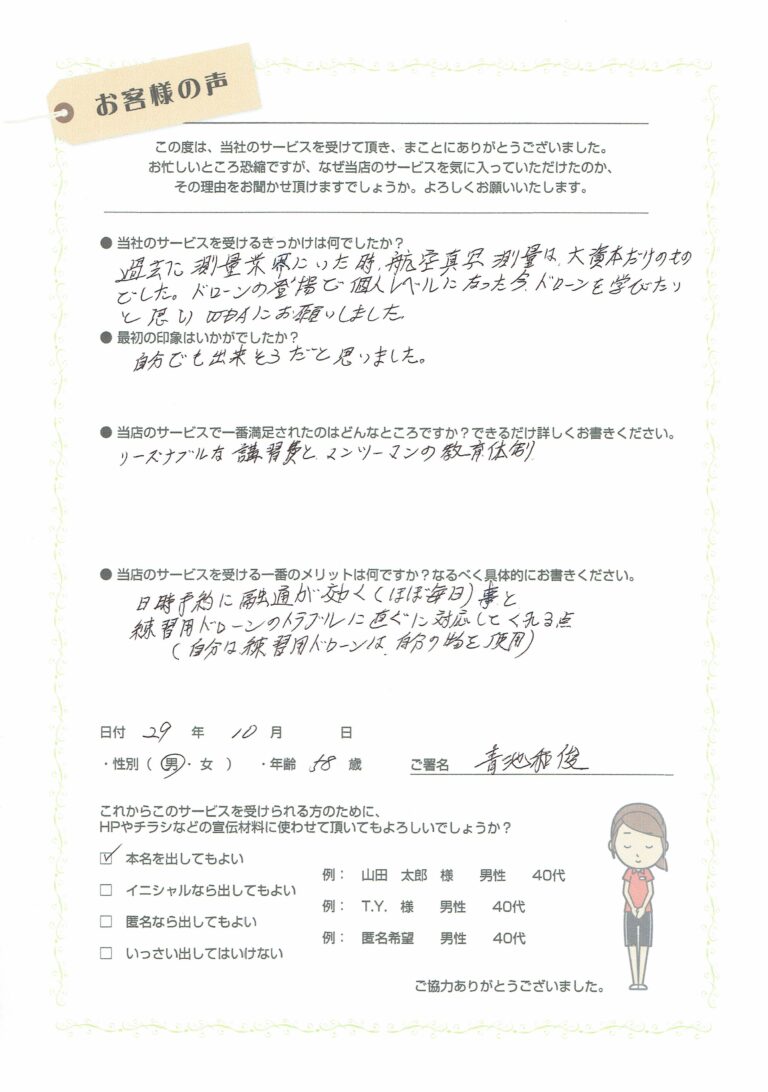 お客様の声
この度は、当社のサービスを受けて頂き、まことにありがとうございました。
お忙しいところ恐縮ですが、なぜ当店のサービスを気に入っていただけたのか、
その理由をお聞かせ頂けますでしょうか。よろしくお願いいたします。
● 当社のサービスを受けるきっかけは何でしたか？
過去に測量業界にいた時、航空真写測量は、大資本だけのもの
でした。ドローンの登場で個人レベルになった今、ドローンを学びたい
と思い にお願いしました。
● 最初の印象はいかがでしたか？
自分でも出来そうだと思いました。
● 当店のサービスで一番満足されたのはどんなところですか？できるだけ詳しくお書きください。
リーズナブルな講習費と、マンツーマンの教育体制
● 当店のサービスを受ける一番のメリットは何ですか？なるべく具体的にお書きください。
日時予約に融通が効く（ほぼ毎日）事と
練習用ドローンのトラブルに直ぐに対応してくれる点
（自分は練習用ドローンは、自分の物を使用）
日付 29 年 10 月 日
・性別（ 男 ・ 女 ） ・年齢 58 歳 ご署名 青池和俊
これからこのサービスを受けられる方のために、
HPやチラシなどの宣伝材料に使わせて頂いてもよろしいでしょうか？
☑ 本名を出してもよい 例： 山田 太郎 様 男性 40代
□ イニシャルなら出してもよい 例： T.Y. 様 男性 40代
□ 匿名なら出してもよい 例： 匿名希望 男性 40代
□ いっさい出してはいけない
ご協力ありがとうございました。